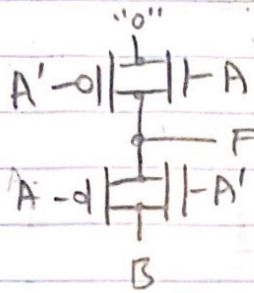 "0"
A' A
F
A A'
B